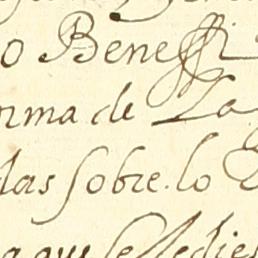 o Beneffi
rma de La
das sobre. lo
que se le dies